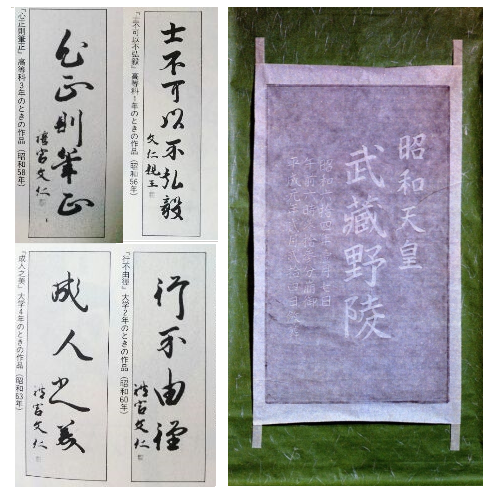 士不可以不弘毅
文仁親王
「士不可以不弘毅」高等科1年のときの作品(昭和56年)
心正則筆正
禮宮文仁
「心正則筆正」高等科3年のときの作品(昭和58年)
行不由徑
禮宮文仁
「行不由徑」大学2年のときの作品(昭和60年)
成人之美
禮宮文仁
「成人之美」大学4年のときの作品(昭和63年)
昭和天皇
武藏野陵